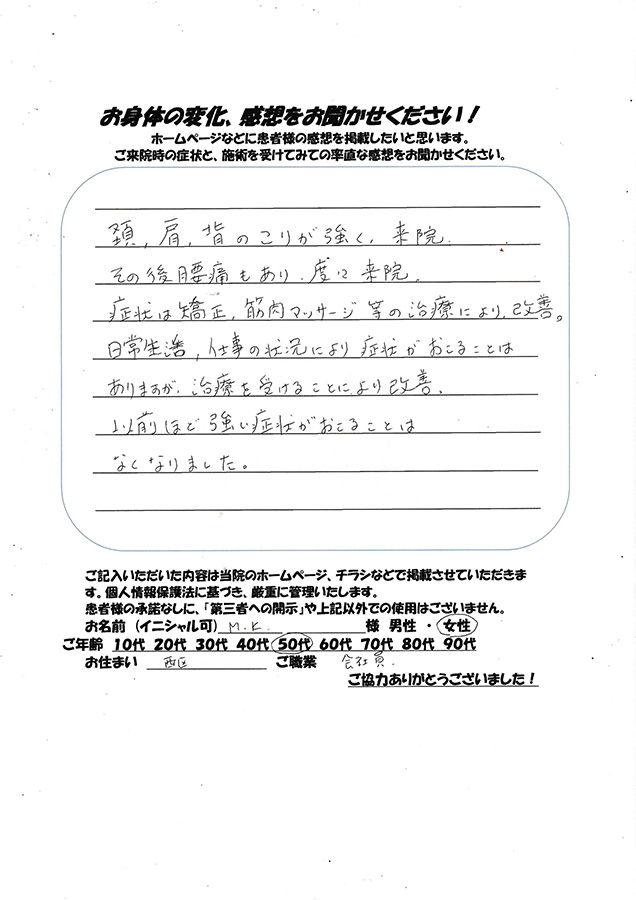 お身体の変化、感想をお聞かせください！
ホームページなどに患者様の感想を掲載したいと思います。
ご来院時の症状と、施術を受けてみての率直な感想をお聞かせください。
頚, 肩, 背のこりが強く, 来院.
その後腰痛もあり. 度々来院.
症状は矯正, 筋肉マッサージ 等の治療により, 改善。
日常生活, 仕事の状況により 症状が おこることは
ありますが, 治療を受けることにより改善.
以前ほど 強い症状がおこることは
なくなりました。
ご記入いただいた内容は当院のホームページ、チラシなどで掲載させていただきま
す。個人情報保護法に基づき、厳重に管理いたします。
患者様の承諾なしに、「第三者への開示」や上記以外での使用はございません。
お名前（イニシャル可） M.K 様 男性 ・ 女性
ご年齢 10代 20代 30代 40代 50代 60代 70代 80代 90代
お住まい 西区 ご職業 会社員.
ご協力ありがとうございました！